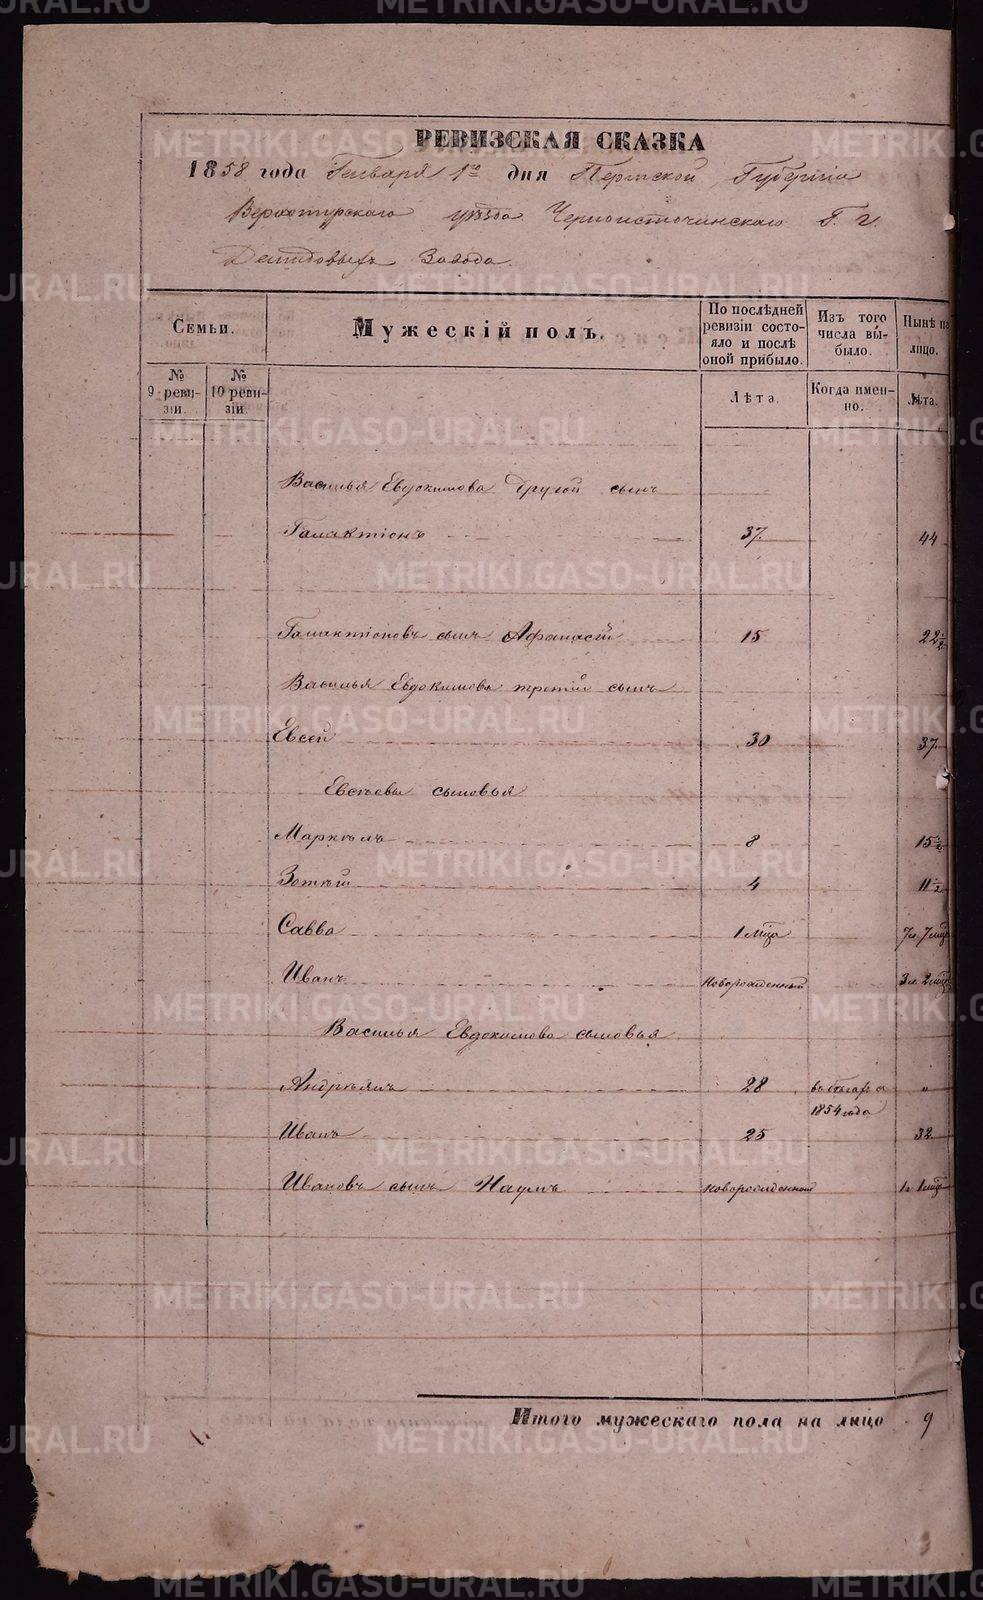 РЕВИЗСКАЯ СКАЗКА
1858 года Генваря 1го дня Пермской Губерніи
Верхотурскаго уѣзда Черноисточинскаго Г. г.
Демидовыхъ Завода.
Семьи. Мужескій полъ. По послѣдней ревизіи состояло и послѣ оной прибыло. Изъ того числа выбыло. Нынѣ на лицо.
№ 9 ревизіи. № 10 ревизіи. Лѣта. Когда именно. Лѣта.
Василья Евдокимова другой сынъ
Галактіонъ 37. 44
Галактіоновъ сынъ Афанасій 15 22 1/2
Василья Евдокимова третій сынъ
Евсей 30 37.
Евсѣевы сыновья
Маркелъ 8 15 1/2
Зотѣй 4 11 1/2
Савва 1 мѣца 7 л. 7 мѣц
Иванъ новорожденный 3 л. 2 мѣц
Василья Евдокимова сыновья
Андреянъ 28 въ бѣгахъ съ 1854 года "
Иванъ 25 32
Ивановъ сынъ Наумъ новорожденный 1 г. 1 мѣц
Итого мужескаго пола на лицо 9
3
METRIKI.GASO-URAL.RU